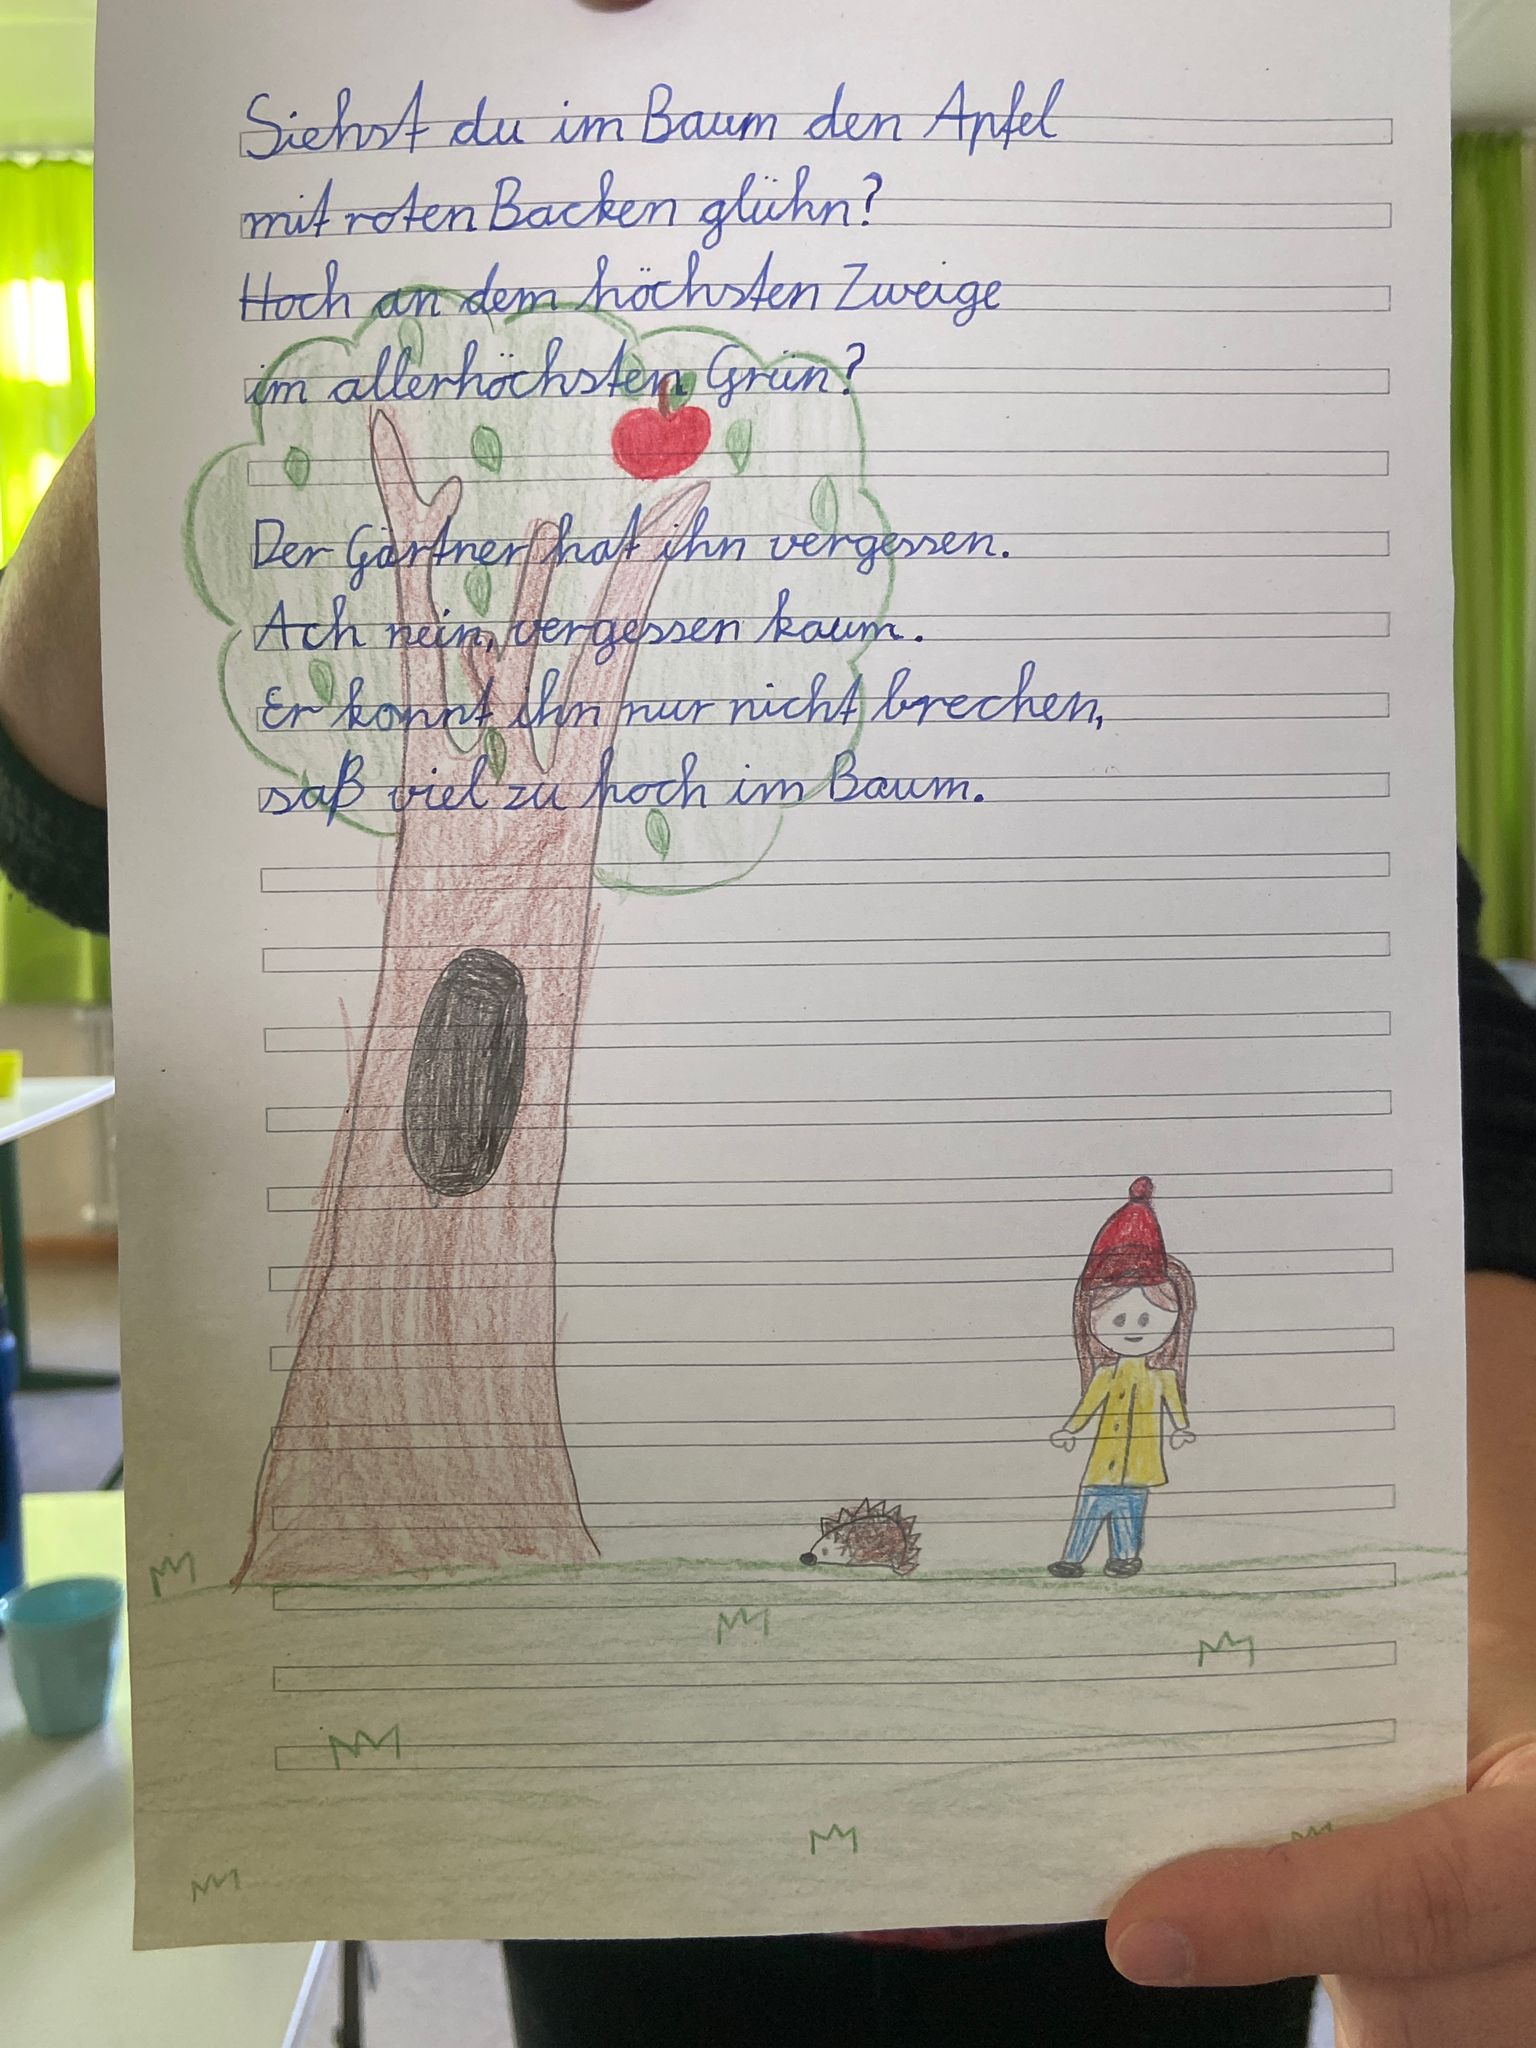 Siehst du im Baum den Apfel
mit roten Backen glühn?
Hoch an dem höchsten Zweige
im allerhöchsten Grün?
Der Gärtner hat ihn vergessen.
Ach nein, vergessen kaum.
Er konnt ihn nur nicht brechen,
saß viel zu hoch im Baum.